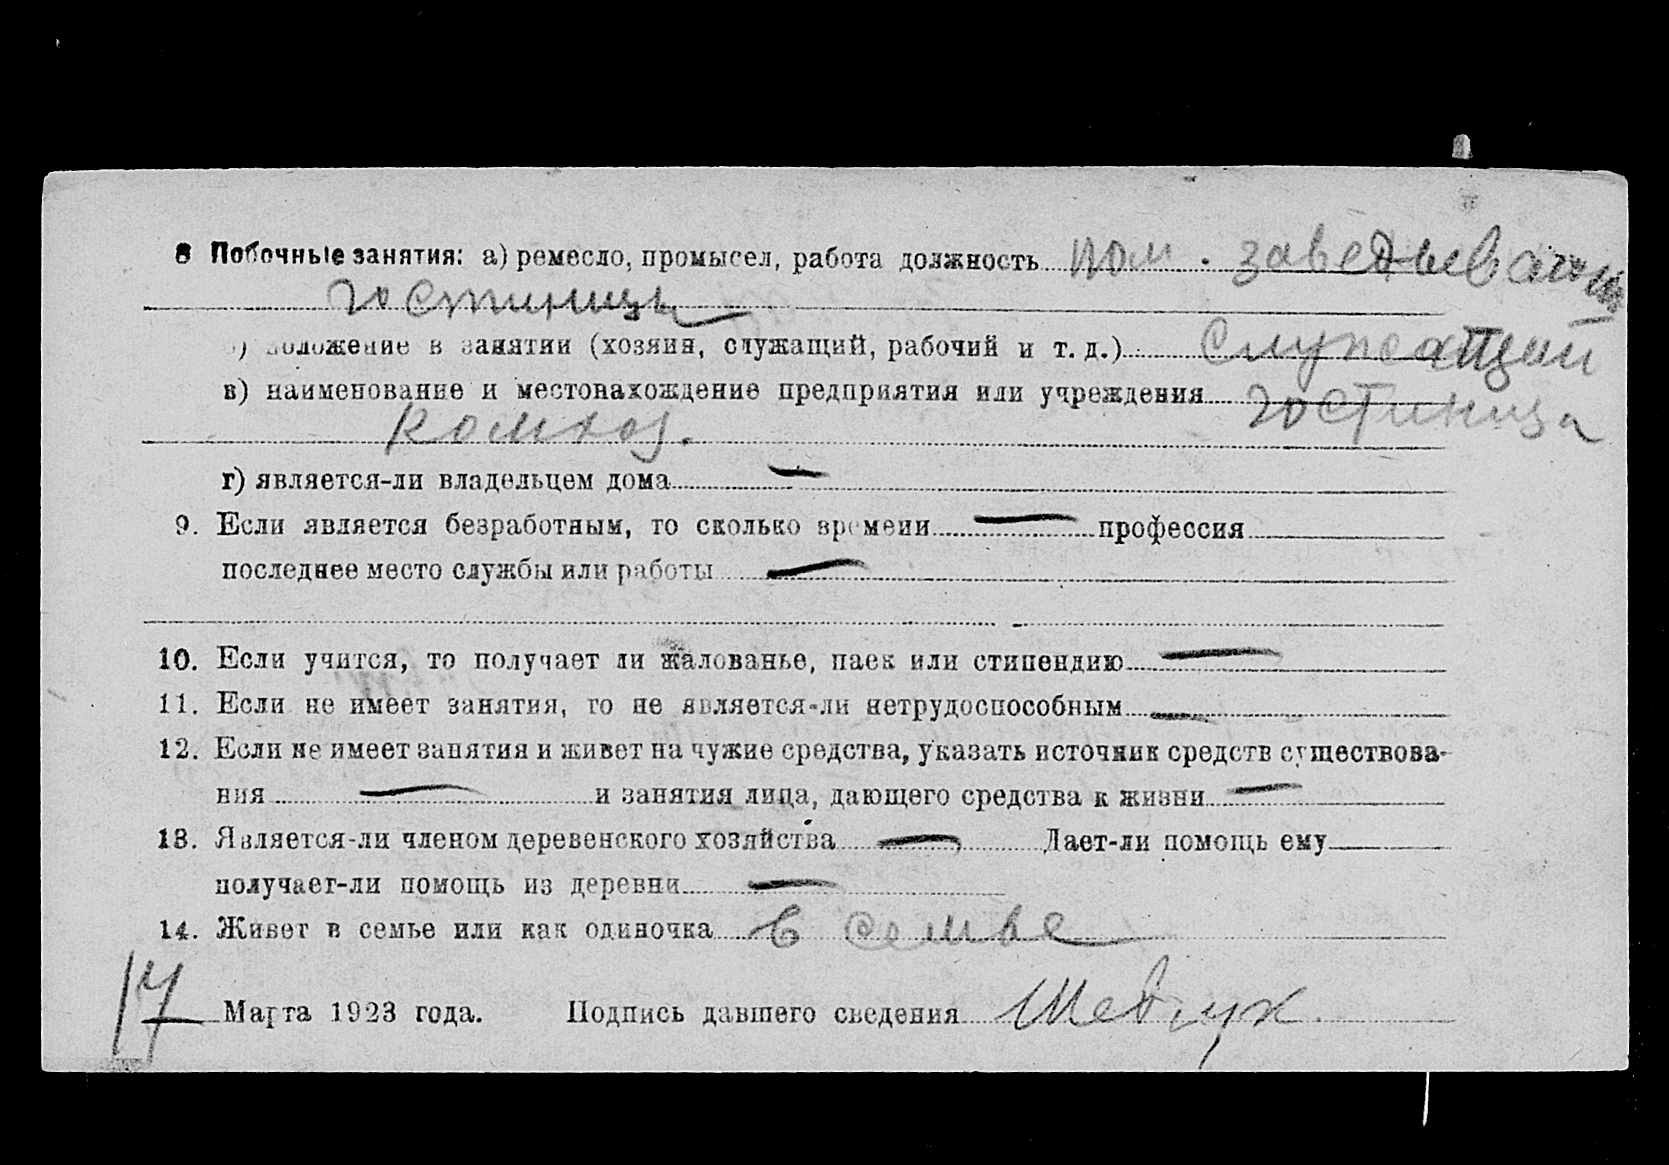 8 Побочные занятия: а) ремесло, промысел, работа должность пом. заведывающ
гостиницы
б) положение в занятии (хозяин, служащий, рабочий и т. д.) Служащий
в) наименование и местонахождение предприятия или учреждения гостиница
комхоз.
г) является-ли владельцем дома —
9. Если является безработным, то сколько времени — профессия
последнее место службы или работы —
10. Если учится, то получает ли жалованье, паек или стипендию —
11. Если не имеет занятия, то не является-ли нетрудоспособным —
12. Если не имеет занятия и живет на чужие средства, указать источник средств существова-
ния — и занятия лица, дающего средства к жизни —
13. Является-ли членом деревенского хозяйства — Дает-ли помощь ему
получает-ли помощь из деревни —
14. Живет в семье или как одиночка в семье
17 Марта 1923 года. Подпись давшего сведения